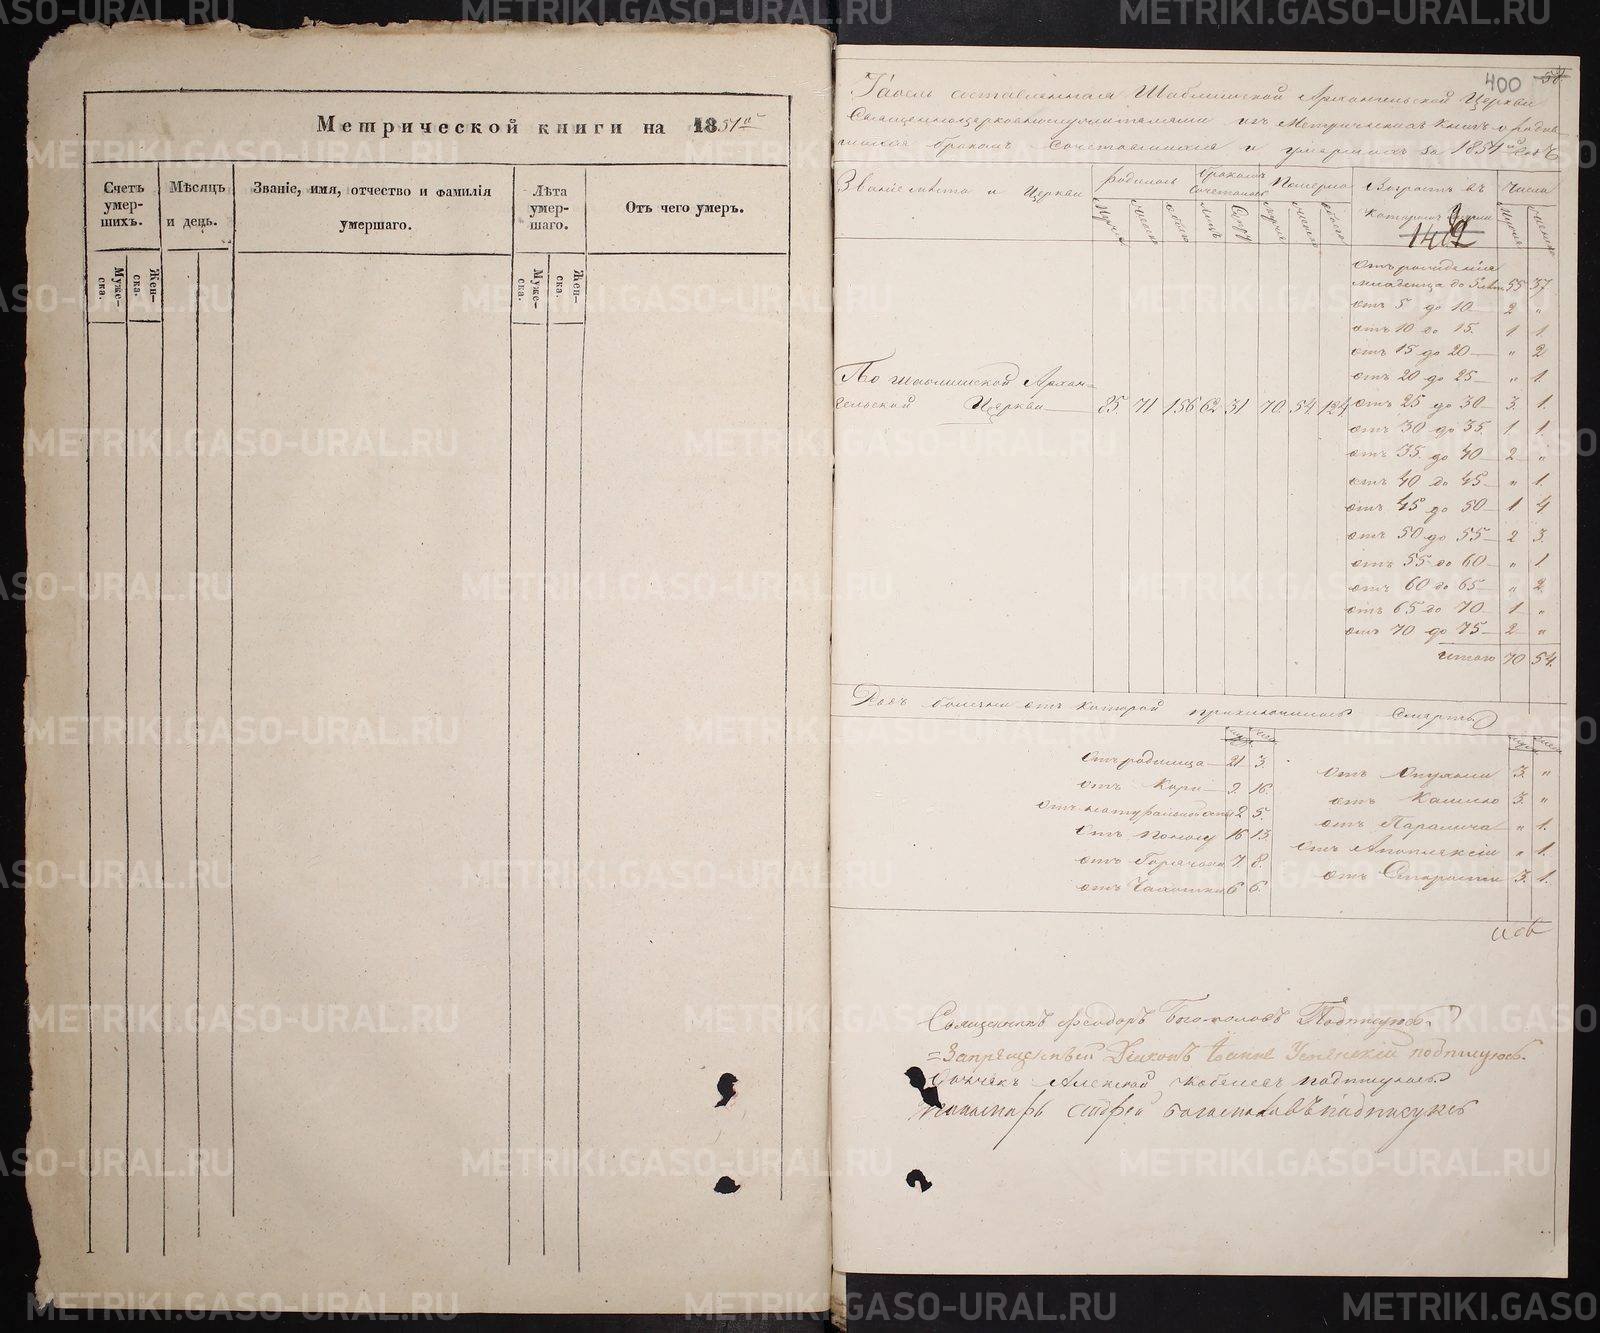 METRIKI.GASO-URAL.RU
Метрической книги на 1851й
Счетъ умер-
шихъ.
Мѣсяцъ
и день.
Званіе, имя, отчество и фамилія
умершаго.
Лѣта
умер-
шаго.
Отъ чего умеръ.
Муже-
ска.
Жен-
ска.
Муже-
ска.
Жен-
ска.
400
Табель составленная Шаблишской Архангельской Церкви
Священноцерковнослужителями изъ Метрическихъ книгъ о родив-
шихся бракомъ сочетавшихся и умершихъ за 1851й годъ
Званіе мѣста и Церкви
родилось
бракомъ
сочетались
Померло
Возрастъ въ
которомъ
Число
отъ рожденія
младенца до 5 лѣтъ 55 37
отъ 5 до 10 2 "
отъ 10 до 15. 1 1
отъ 15 до 20 " 2
отъ 20 до 25 " 1.
По шаблишской Архан-
гельской Церкви 85. 71 156 62 31 70. 54. 124
отъ 25 до 30 3. 1.
отъ 30 до 35. 1. 1.
отъ 35. до 40 2 "
отъ 40 до 45 " 1.
отъ 45 до 50 1 4
отъ 50 до 55 2 3.
отъ 55 до 60 " 1
отъ 60 до 65 " 2
отъ 65 до 70 1 "
отъ 70 до 75 2 "
итого 70 54.
Родъ болезни отъ которой приключилась Смерть
отъ родимца 21 3.
отъ Кори 9. 16.
2 5.
отъ поносу 16 13.
отъ Горячки 7. 8.
отъ Чахотки 6 6.
отъ Опухоли 3. "
отъ Кашлю 3. "
отъ Паралича " 1.
отъ Апоплексіи " 1.
отъ Старости 3. 1.
Священникъ Феодоръ Богомоловъ Подписуюсь
Запрещенный Діаконъ Іаковъ Успенскій подпишуюсь.
Дьячекъ Алексей подписуюсь
пономарь Андрей подписуюсь